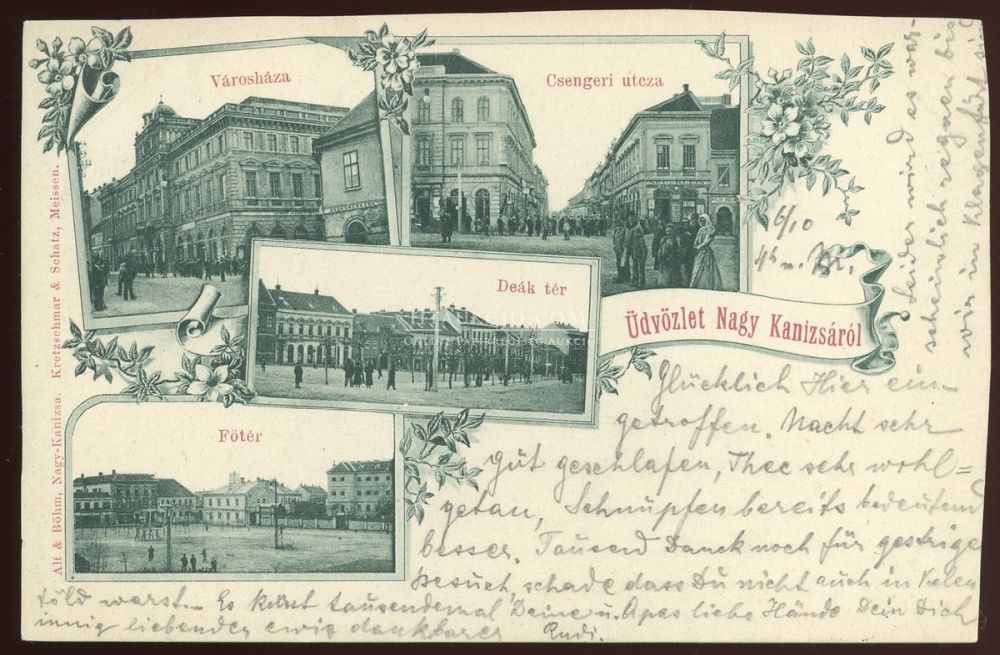 Városháza
Csengeri utcza
Deák tér
Főtér
Üdvözlet Nagy Kanizsáról
Alt & Böhm, Nagy-Kanizsa. Kretzschmar & Schatz, Meissen.
6/10
Glücklich Hier ein-
getroffen. Nacht sehr
gut geschlafen, Thee sehr wohl=
getan, Schnupfen bereits bedeutend
besser. Tausend Danck noch für gestrige
besuch, schade dass Du nicht auch in
warst. Es küsst tausendemal Deine u. Apas liebe Hände Dein Dich
innig liebender ewig dankbarer Rudi.
Leider wird es war-
scheinlich regnen bis
wir in Klagenfurt